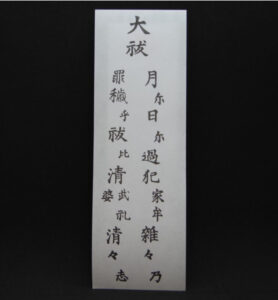 大
祓
月尓日尓過犯家牟雑々乃
罪穢乎祓比清武礼婆清々志